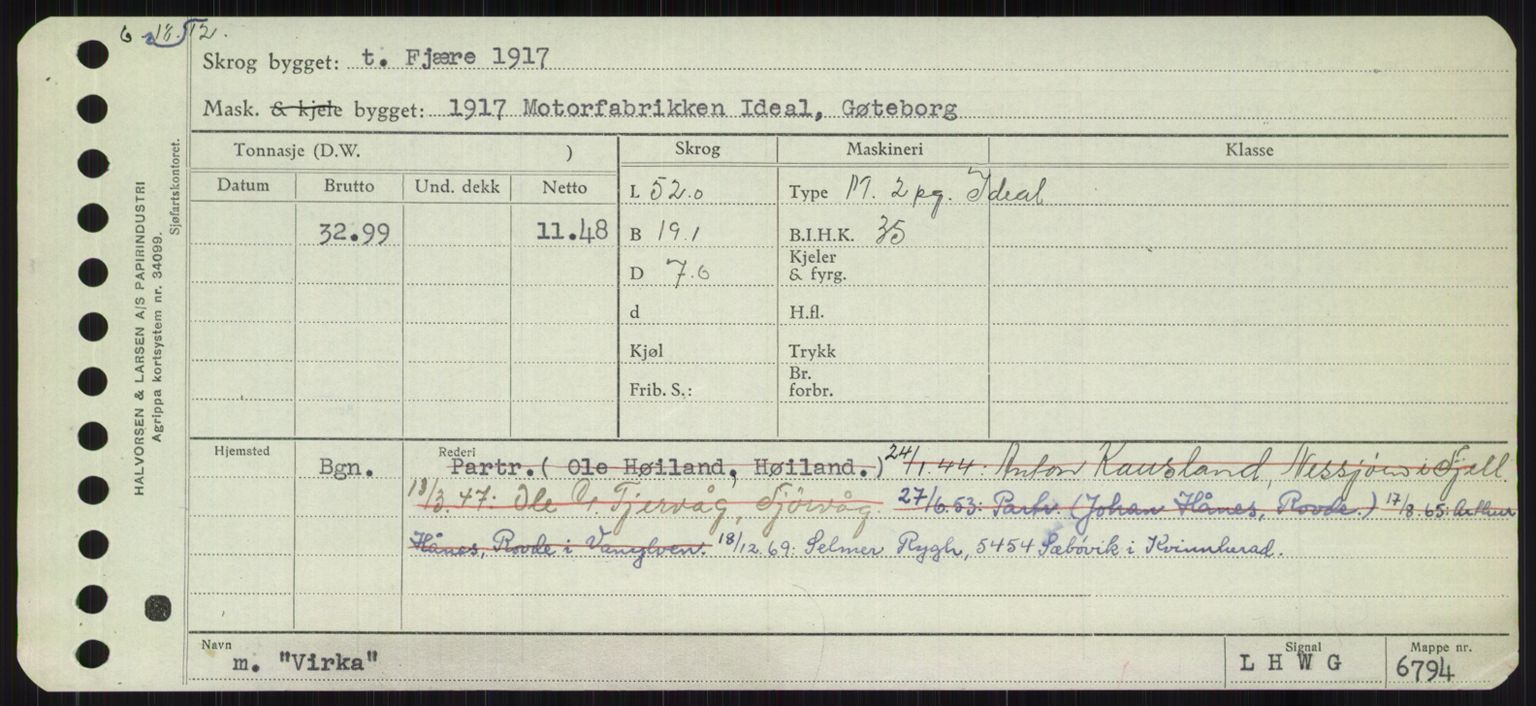 6 18/512.
Skrog bygget: t. Fjære 1917
Mask. & kjele bygget: 1917 Motorfabrikken Ideal, Gøteborg
Tonnasje (D.W. ) Skrog Maskineri Klasse
Datum Brutto Und. dekk Netto L 52.0 Type M. 2 pg. Ideal
32.99 11.48 B 19.1 B.I.H.K. 35
D 7.6 Kjeler & fyrg.
d H.fl.
Kjøl Trykk
Frib. S.: Br. forbr.
Hjemsted Rederi
Bgn. Partr.( Ole Høiland, Høiland.) 24/1.44: Anton Kausland, Nessjøen i Fjell.
13/3.47: Ole O. Fjervåg, Fjörvåg. 27/6.53: Partr. (Johan Hånes, Rovde.) 17/8.65: Arthur
Hånes, Rovde i Vanylven. 18/12.69: Selmer Rygh, 5454 Sæbövik i Kvinnherad.
Navn Signal Mappe nr.
m. "Virka" L H W G 6794
HALVORSEN & LARSEN A/S PAPIRINDUSTRI
Agrippa kortsystem nr. 34099.
Sjøfartskontoret.